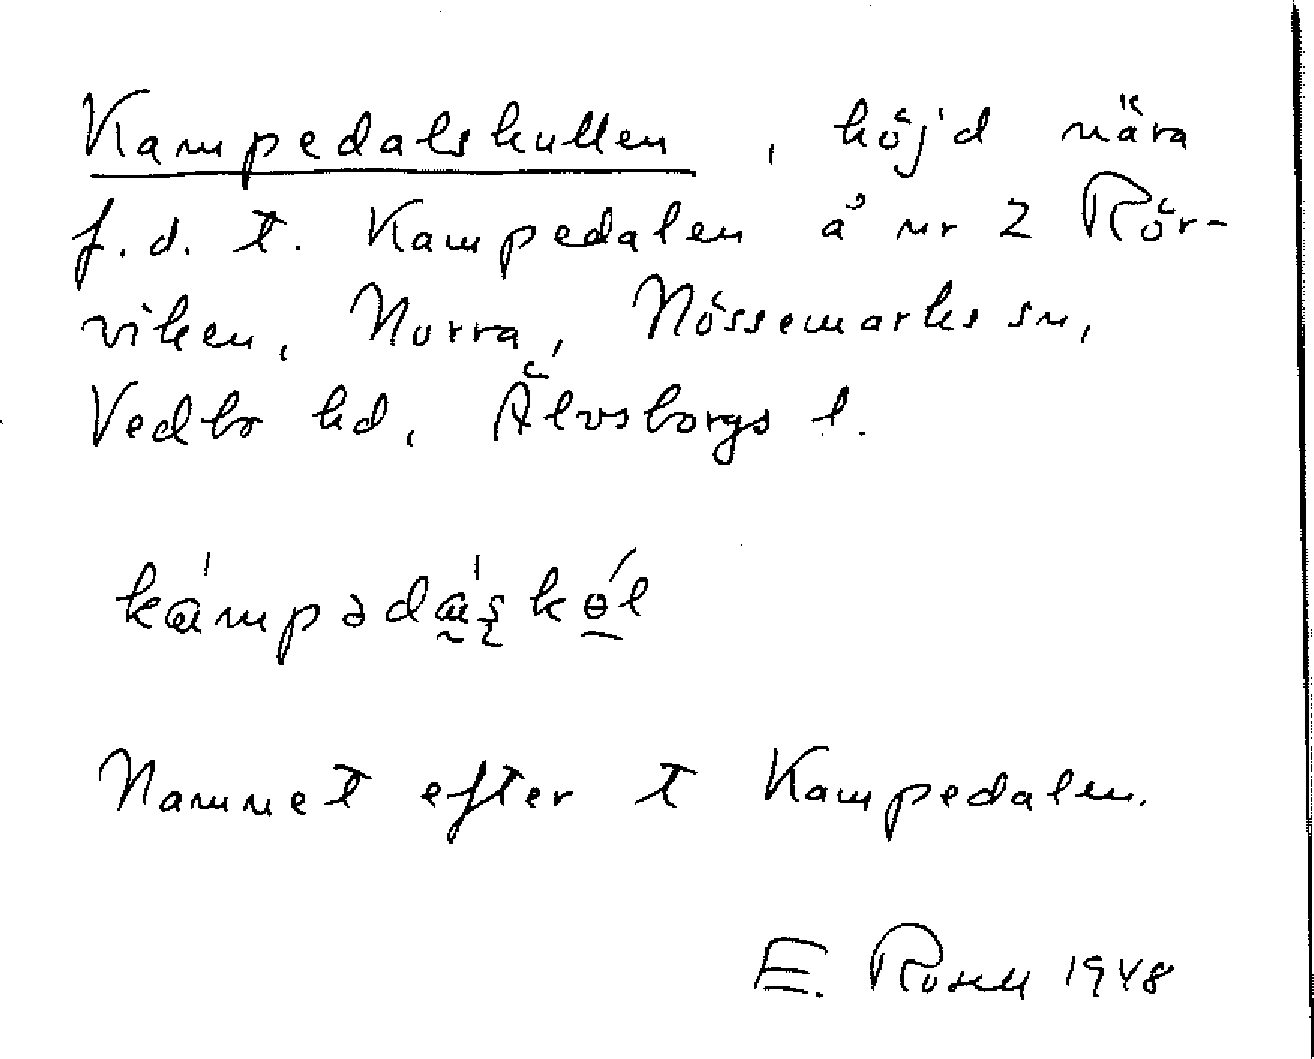 Kampedalskullen, höjd nära
f.d. t. Kampedalen å nr 2 Rör-
viken, Norra, Nössemarks sn,
Vedbo hd, Älvsborgs l.
Namnet efter t Kampedalen.
E. Rosell 1948